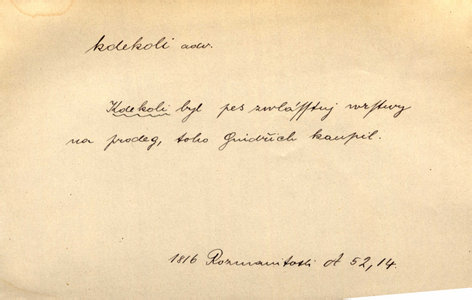 kdekoli adv.
Kdekoli byl pes zwlásstnj wrstwy
na prodeg, toho Gindřich kaupil.
1816 Rozmanitosti A 52,14.